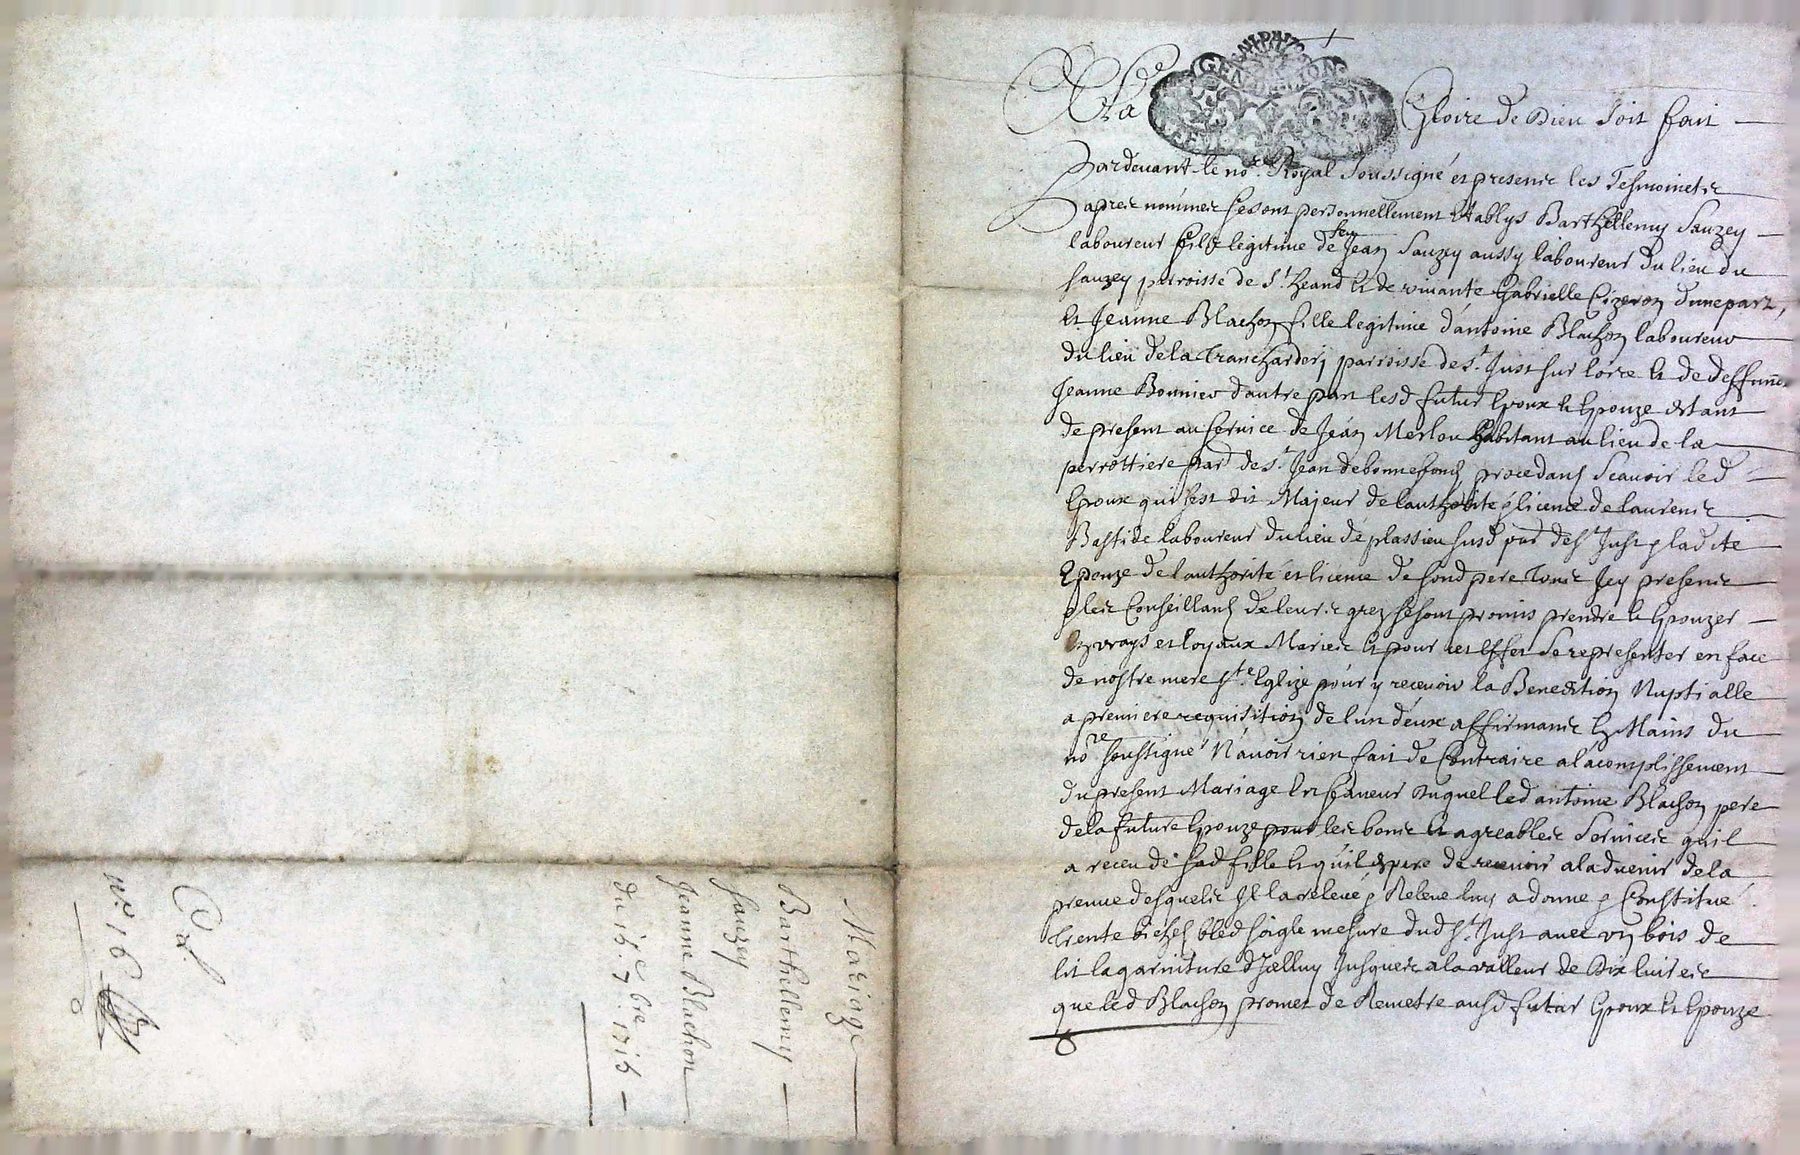 Mariage
Barthellemy
Sauzey
Jeanne Blachon
du 15e 7bre 1715
n° 16
A la Gloire de Dieu soit fait
GENERATION
Pardevant le no.re Royal soussigné et presents les Tesmoinetz
apres nommez se sont personnellement Establys Barthellemy Sauzey
laboureur fils legitime de feu Jean Sauzey aussy laboureur du lieu du
sauzey parroisse de St. heand et de vivante Gabrielle Cizeron d'une part,
et Jeanne Blachon fille legitime d'antoine Blachon laboureur
du lieu de la Trancharderj parroisse de St. Just sur loire et de deffunte
Jeanne Bonnier d'autre part lesd futur Epoux et Epouze estant
de present au service de Jean Merlou habitant au lieu de la
perrottiere par de St. Jean de bonnefond, procedans Scavoir led
Epoux qui s'est dit Majeur de l'authorité & licence de laurens
Bastide laboureur du lieu de plassieu susd par de St Just & ladite
Epouze de l'authorité et licence de sond pere tous Jcy presens
& les Conseillans de leurs grez se sont promis prendre et Epouzer
En vrays et loyaux Mariez et pour cet Effet se representer en face
de nostre mere Ste. Eglize pour y recevoir la Benediction Nuptialle
a premiere requisition de l'un d'eux affirmants Es Mains du
no.re soussigné N'avoir rien fait de Contraire a l'acomplissement
du present Mariage En faveur duquel led antoine Blachon pere
de la future Epouze pour les bons et agreables Services qu'il
a receu de sad fille et qu'il espere de recevoir a l'advenir de la
preuve desquels Il la relevé & Releve luy a donne & Constitué
Trente bichez bled soigle mesure dud St. Just avec un bois de
lit la garniture d'Jcelluy Jusques a la valleur de Dix livres
que led Blachon promet de Remetre ausd futur Epoux et Epouze